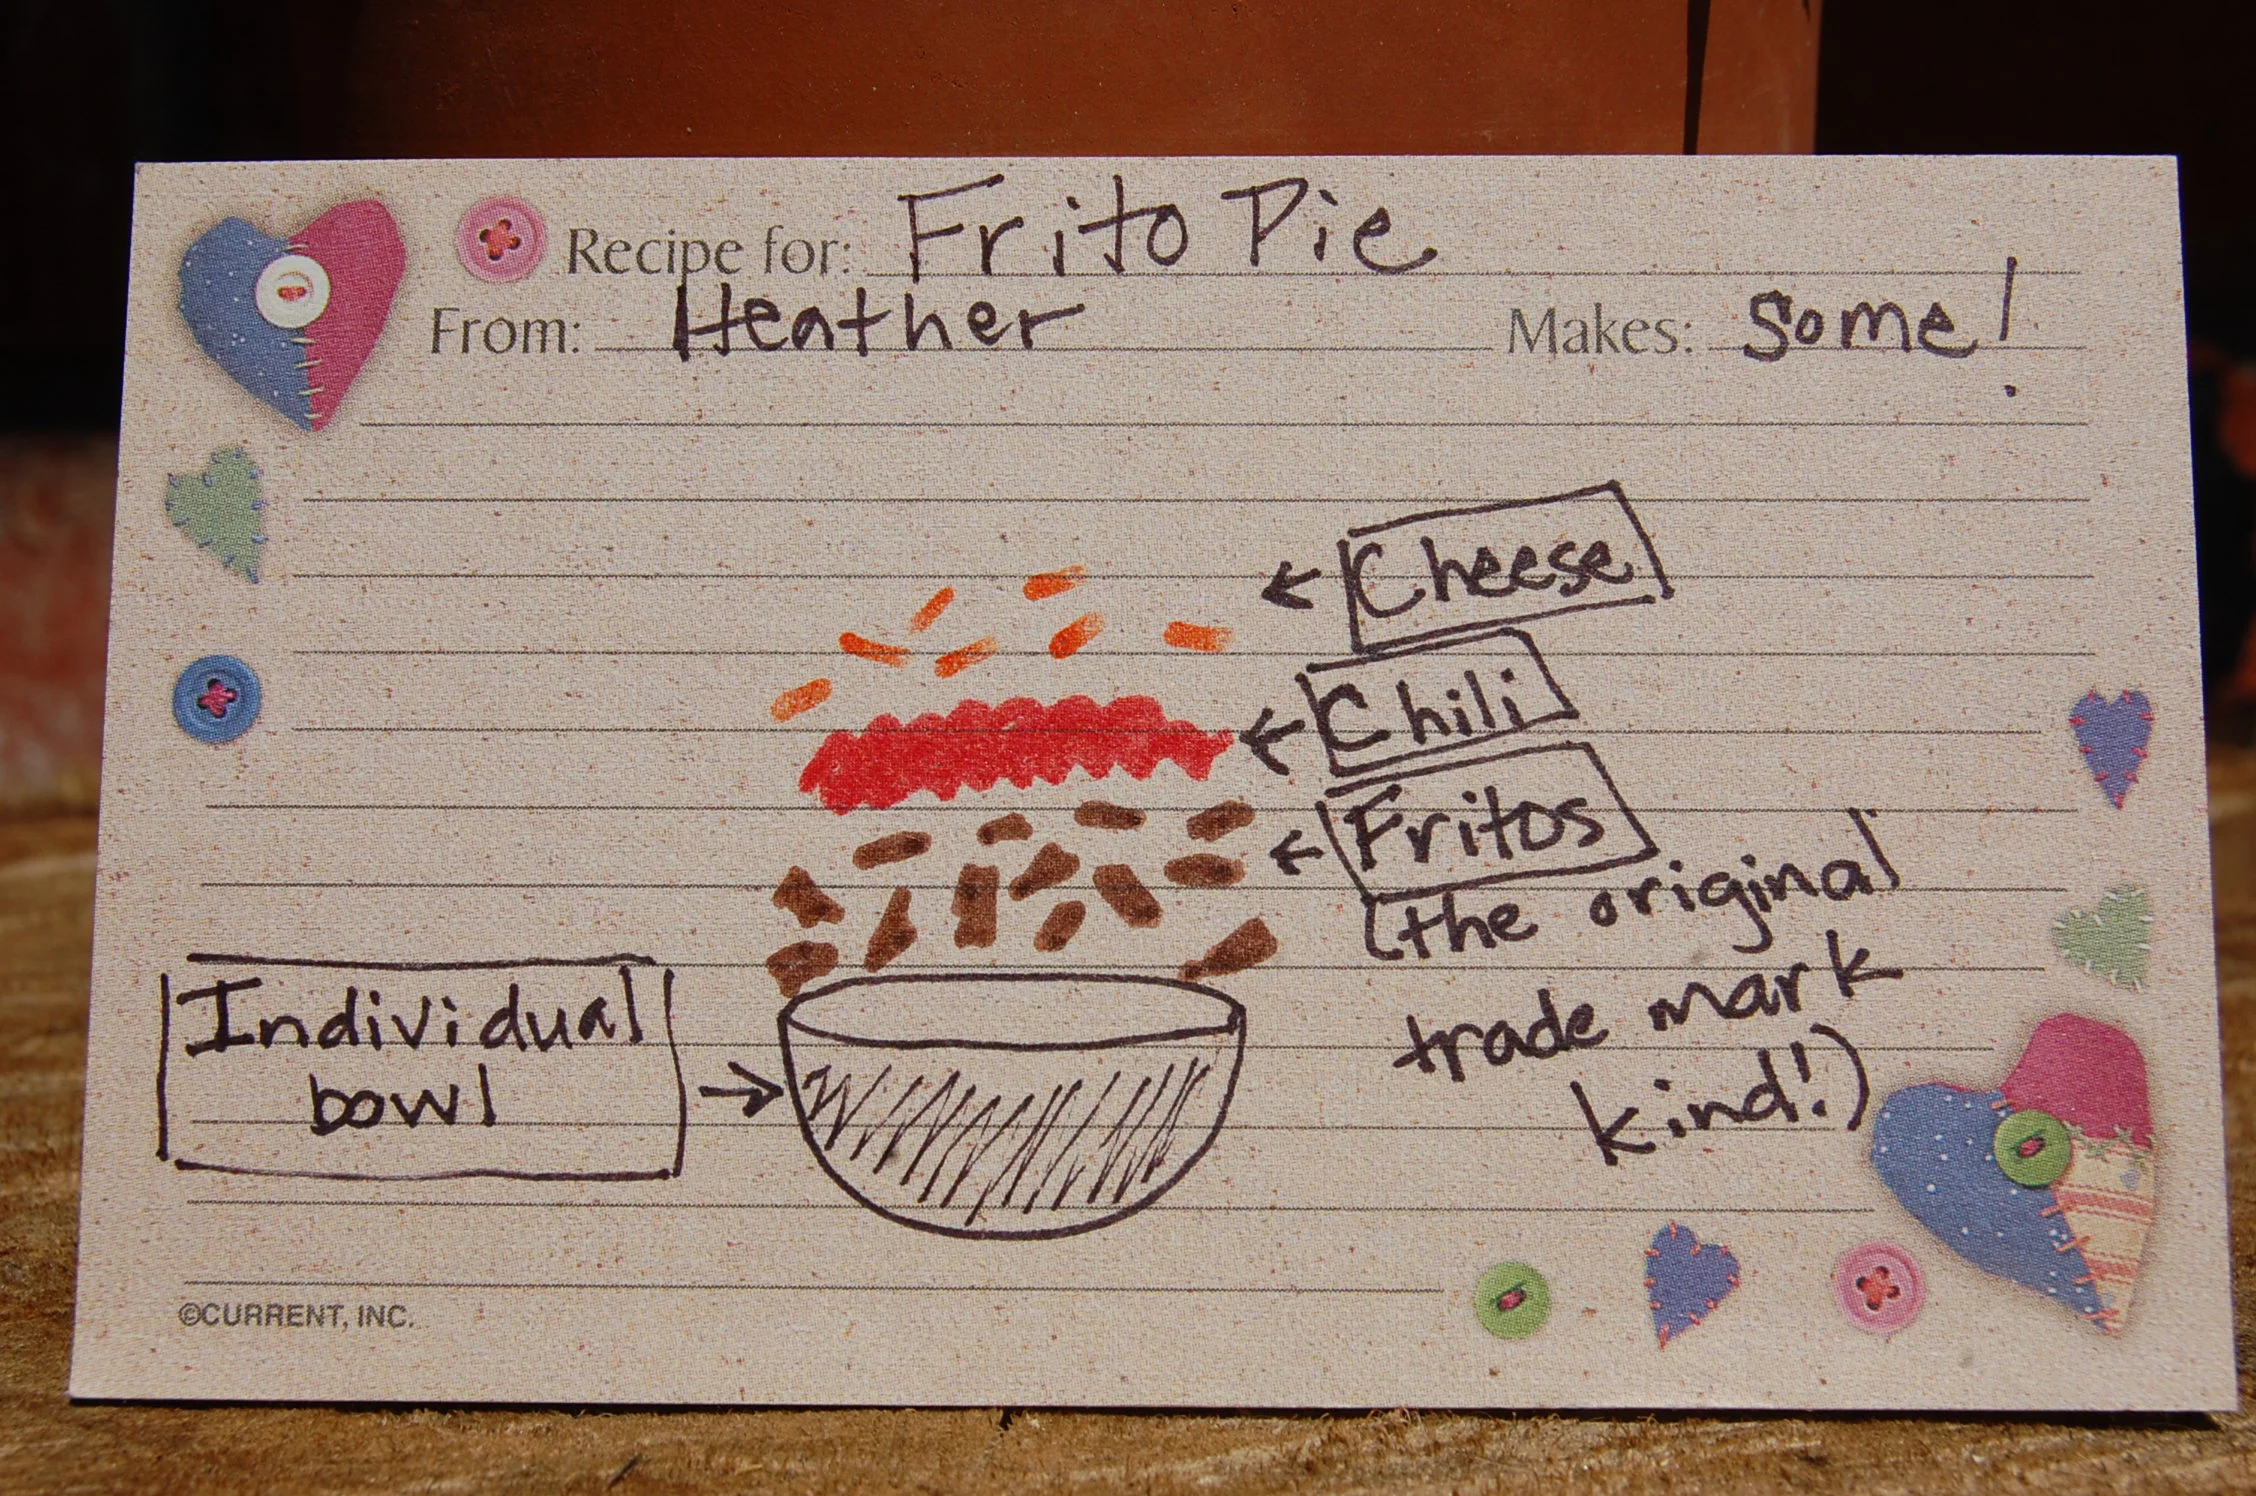 Recipe for: Frito Pie
From: Heather Makes: Some!
Cheese
Chili
Fritos
(the original
trade mark
kind!)
Individual
bowl
©CURRENT, INC.